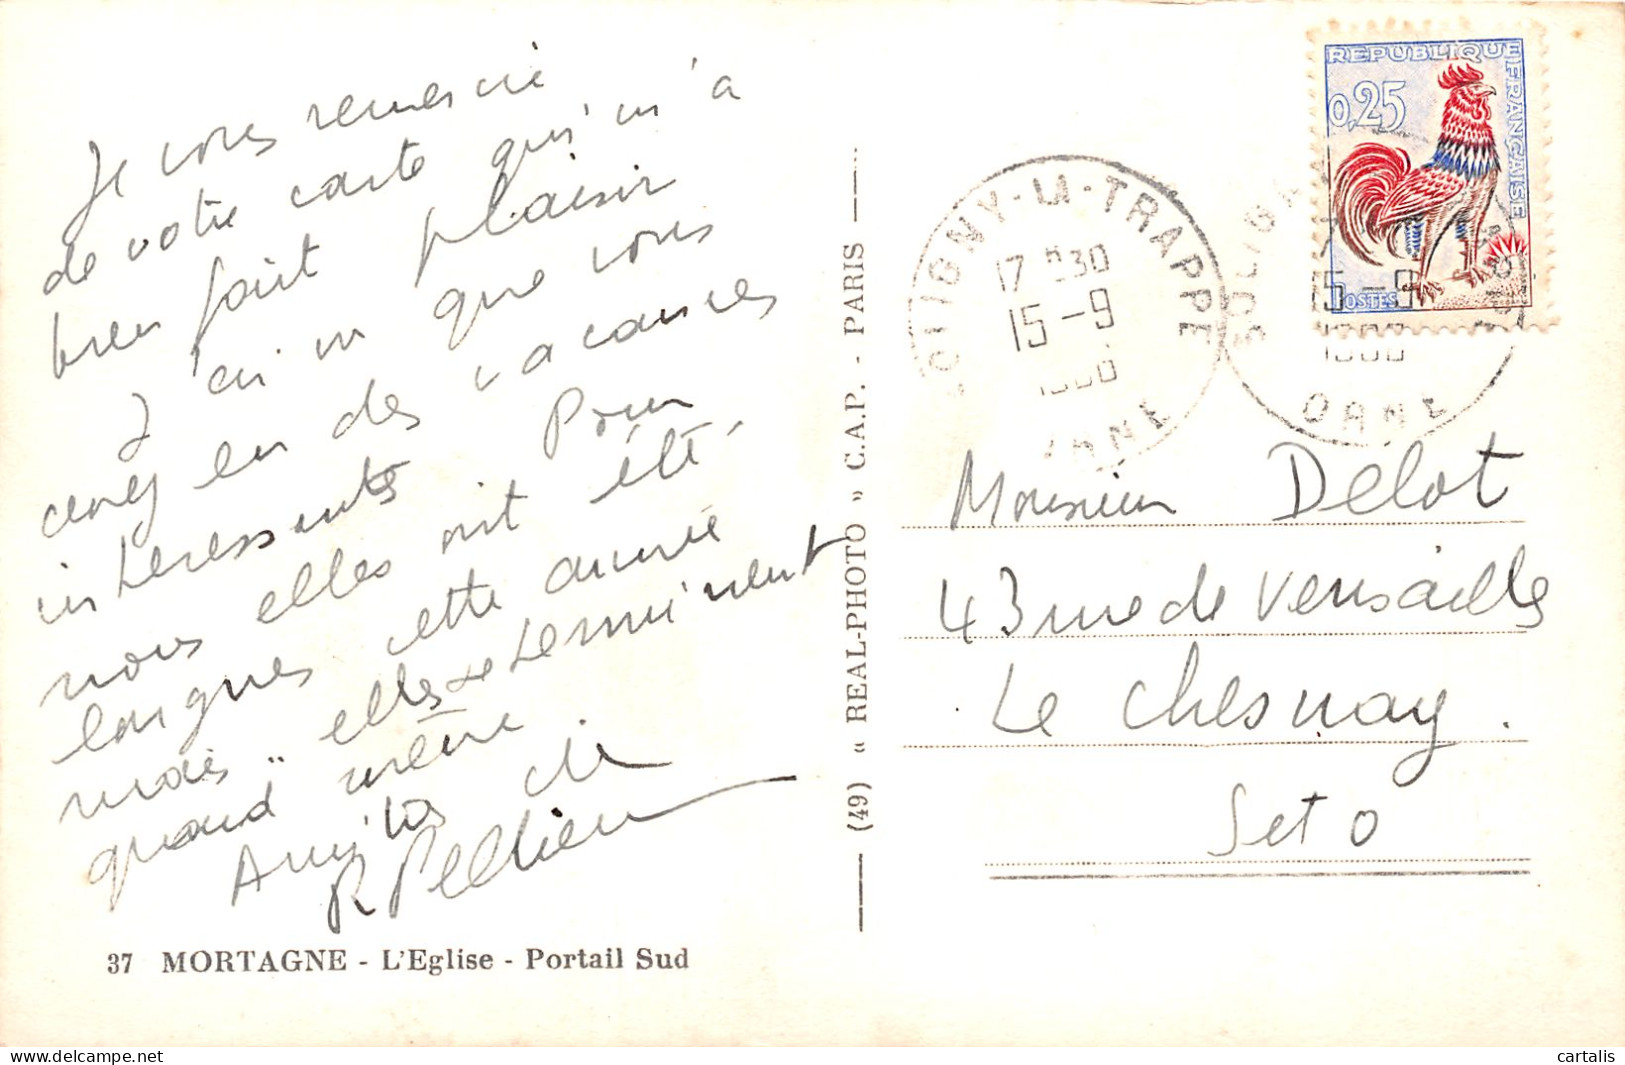 Je vous remercie
de votre carte qui m'a
bien fait plaisir
J'ai vu que vous
aviez eu des vacances
interessantes Pour
nous elles ont été
longues cette année
mais "elles se terminent
quand même
Amitiés
R Pellier
37 MORTAGNE - L'Eglise - Portail Sud
(49) « REAL-PHOTO » C.A.P. - PARIS
SOLIGNY-LA-TRAPPE
17H30
15-9
ORNE
SOLIGNY
15-9
ORNE
REPUBLIQUE FRANÇAISE
0,25
POSTES
Monsieur Delot
43 rue de Versailles
Le Chesnay.
Set O
cartalis
delcampe.net